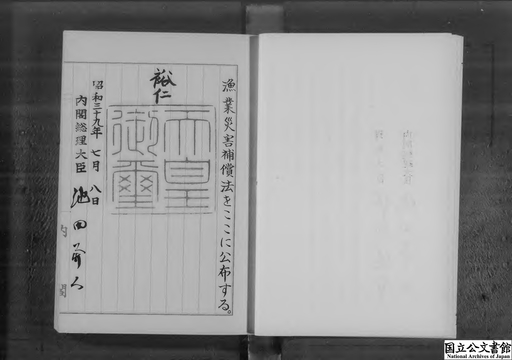 漁業災害補償法をここに公布する。
裕仁
天皇御璽
昭和三十九年七月八日
内閣総理大臣 池田勇人
内閣
国立公文書館
National Archives of Japan